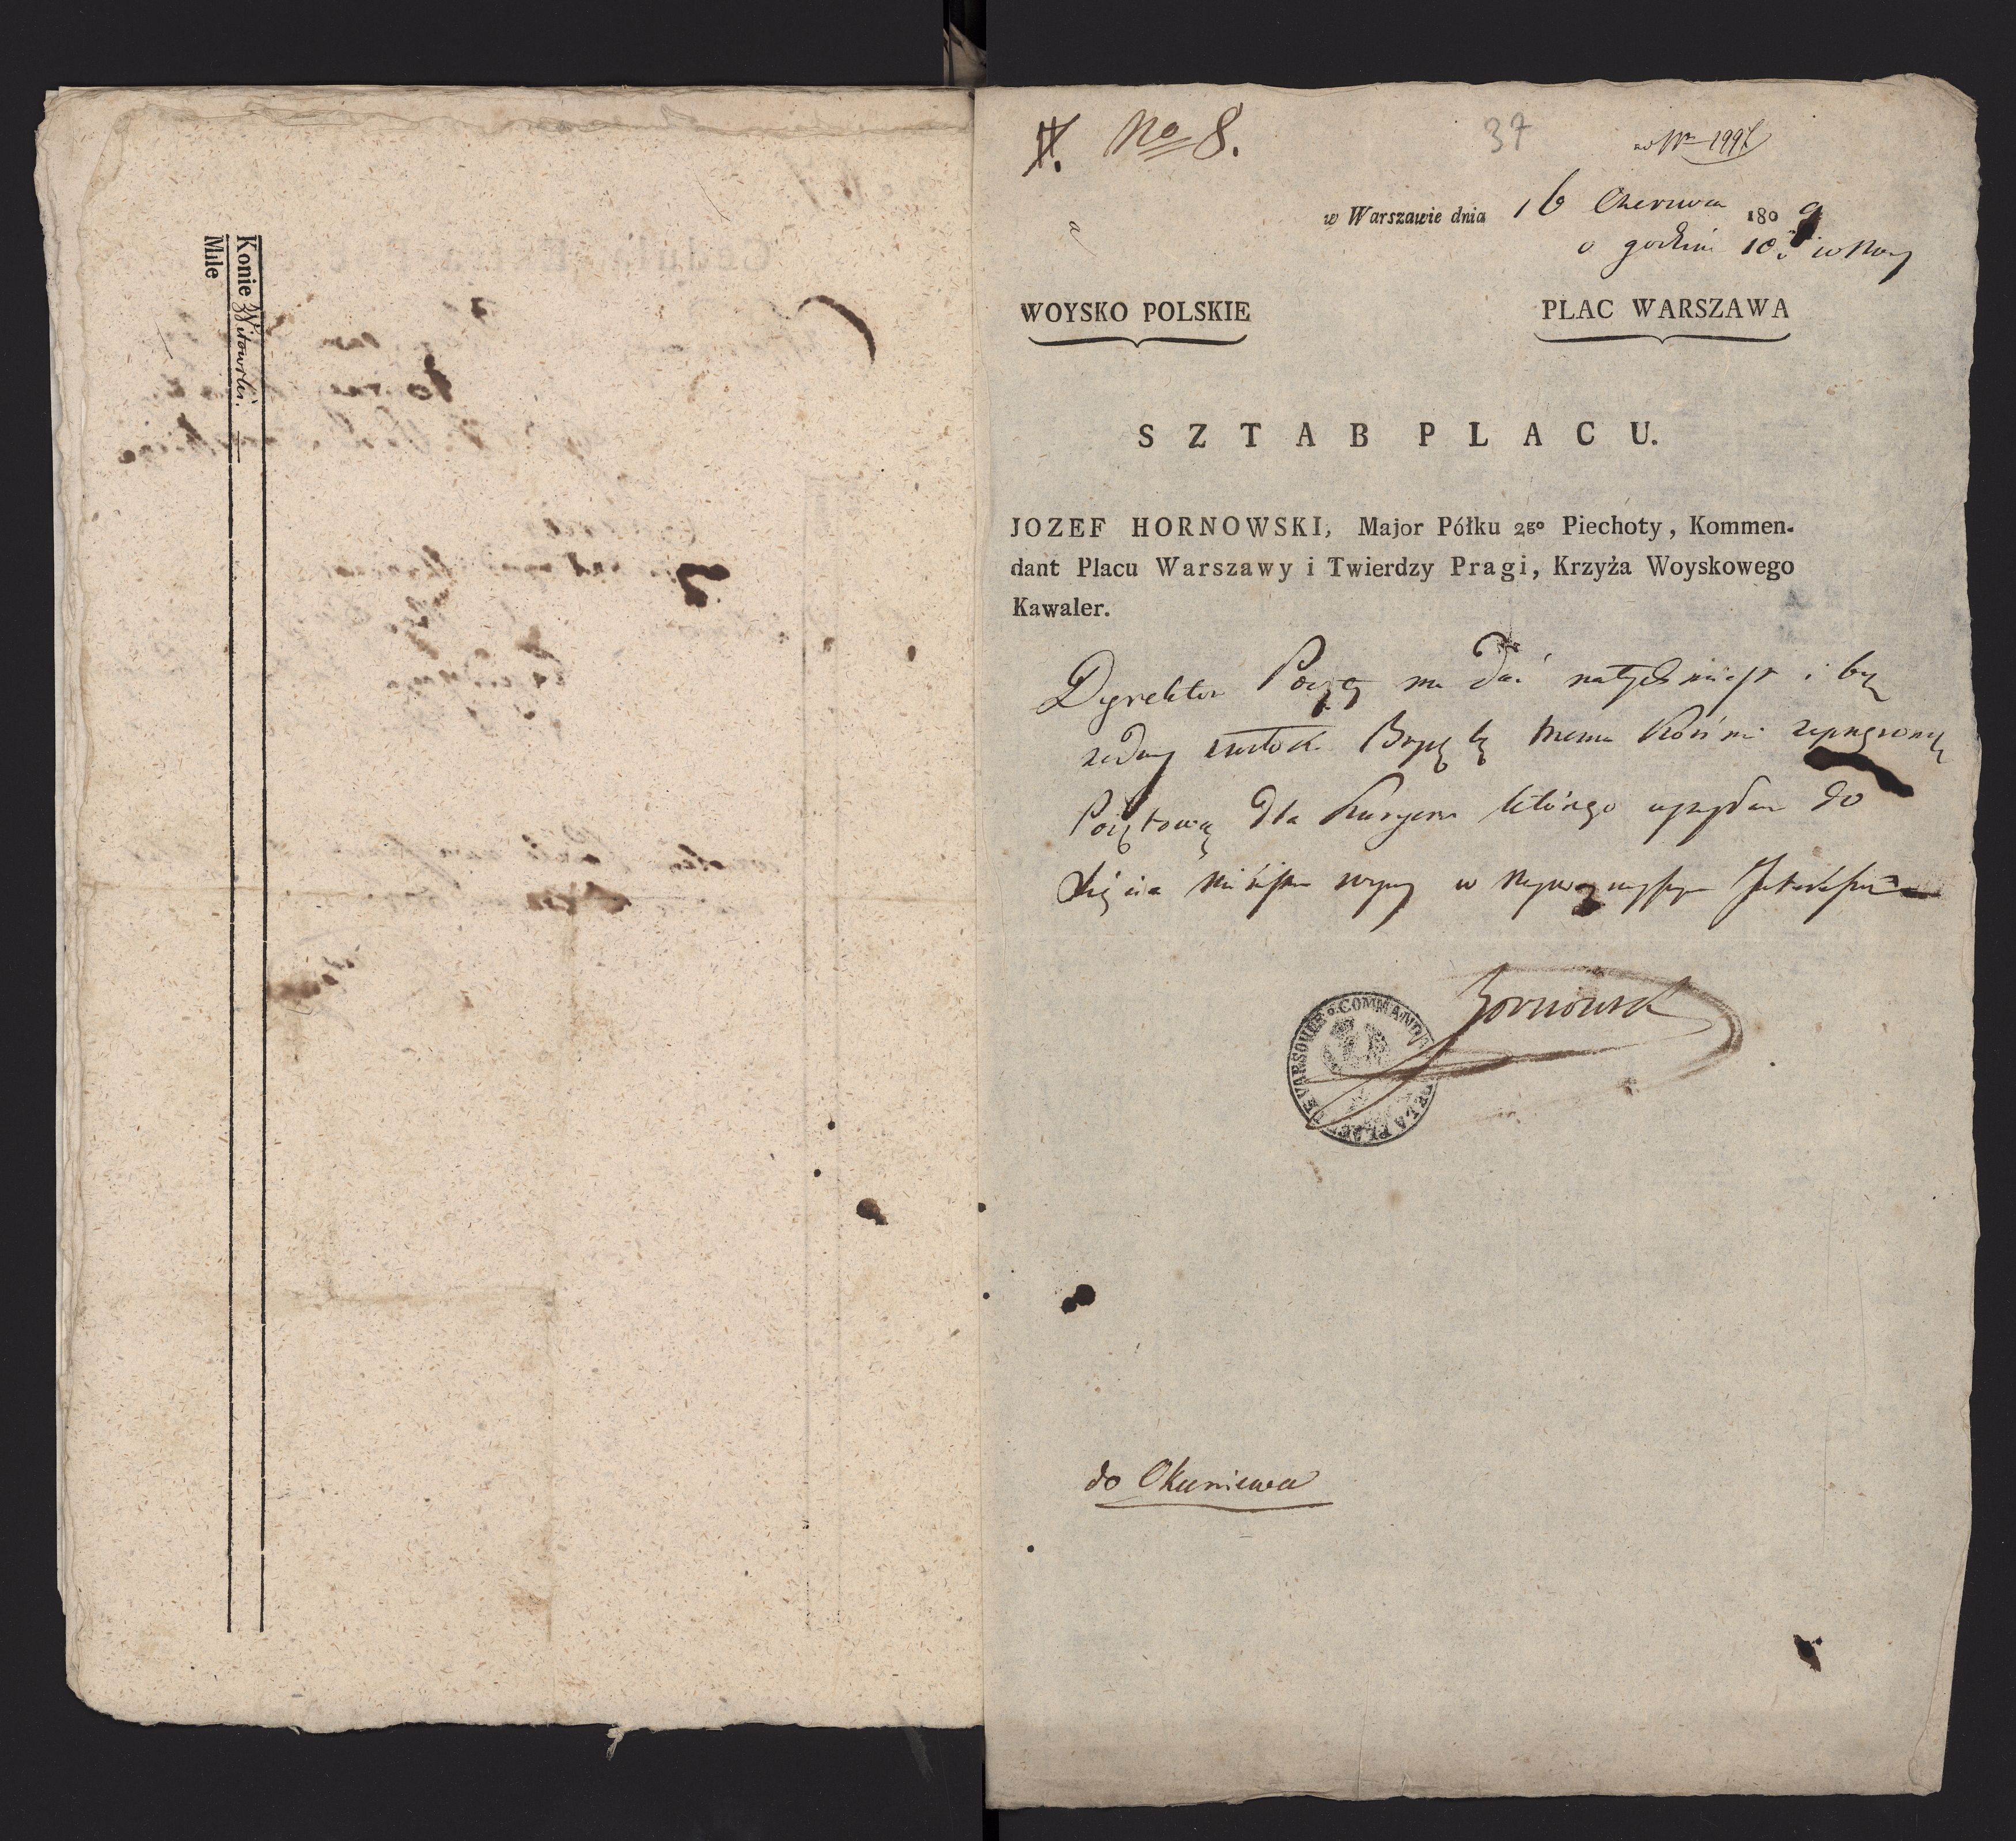 Konie Witowski.
Mile
No 8.
37
w Warszawie dnia 16 Czerwca 1809
o godzinie 10. w Nocy
WOYSKO POLSKIE
PLAC WARSZAWA
SZTAB PLACU.
JOZEF HORNOWSKI, Major Półku 2go Piechoty, Kommen-
dant Placu Warszawy i Twierdzy Pragi, Krzyża Woyskowego
Kawaler.
Dyrektor Poczty ma dać natychmiast i bez
żadney zwłoki Bryczkę trzema Końmi zaprzężoną
Pocztową dla Kuryera którego wysyłam do
Xięcia Ministra Woyny w
Hornowski
COMMANDANT DE LA PLACE DE VARSOVIE
do Okuniewa